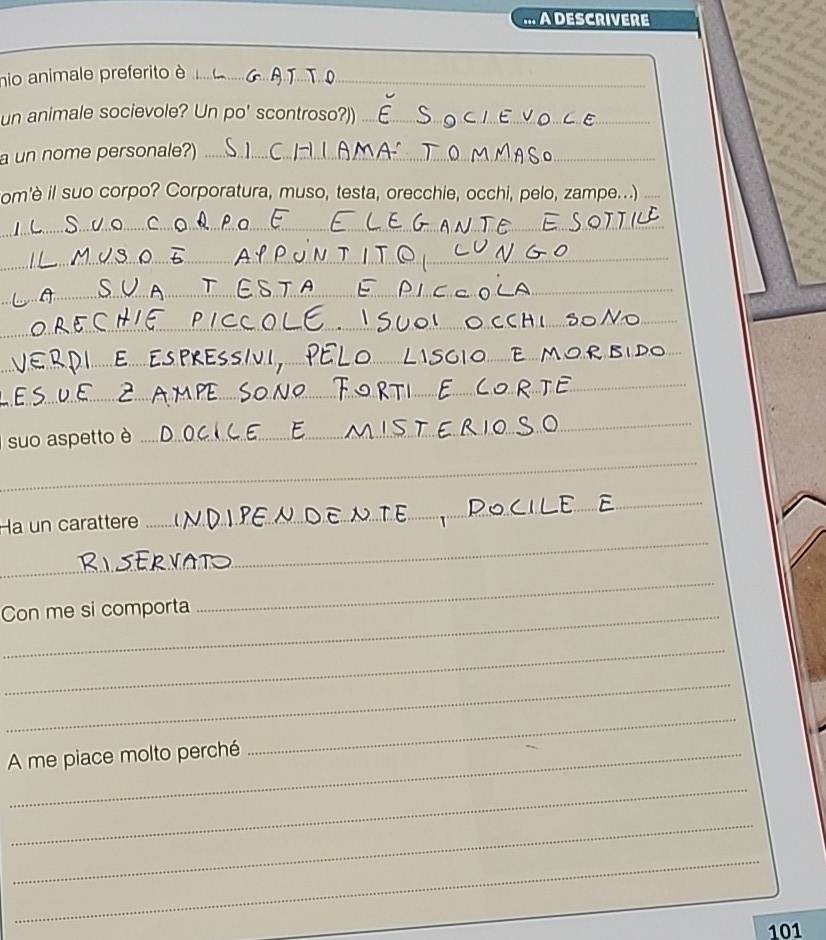 ... A DESCRIVERE
nio animale preferito è IL GATTO
un animale socievole? Un po' scontroso?)) È SOCIEVOLE
a un nome personale?) SI CHIAMA: TOMMASO
om'è il suo corpo? Corporatura, muso, testa, orecchie, occhi, pelo, zampe...)
IL SUO CORPO E ELEGANTE E SOTTILE
IL MUSO E APPUNTITO, LUNGO
LA SUA TESTA E PICCOLA
ORECHIE PICCOLE. I SUOI OCCHI SONO
VERDI E ESPRESSIVI, PELO LISCIO E MORBIDO
LE SUE ZAMPE SONO FORTI E CORTE
l suo aspetto è DOCILE E MISTERIOSO
Ha un carattere INDIPENDENTE, DOCILE E
RISERVATO
Con me si comporta
A me piace molto perché
101